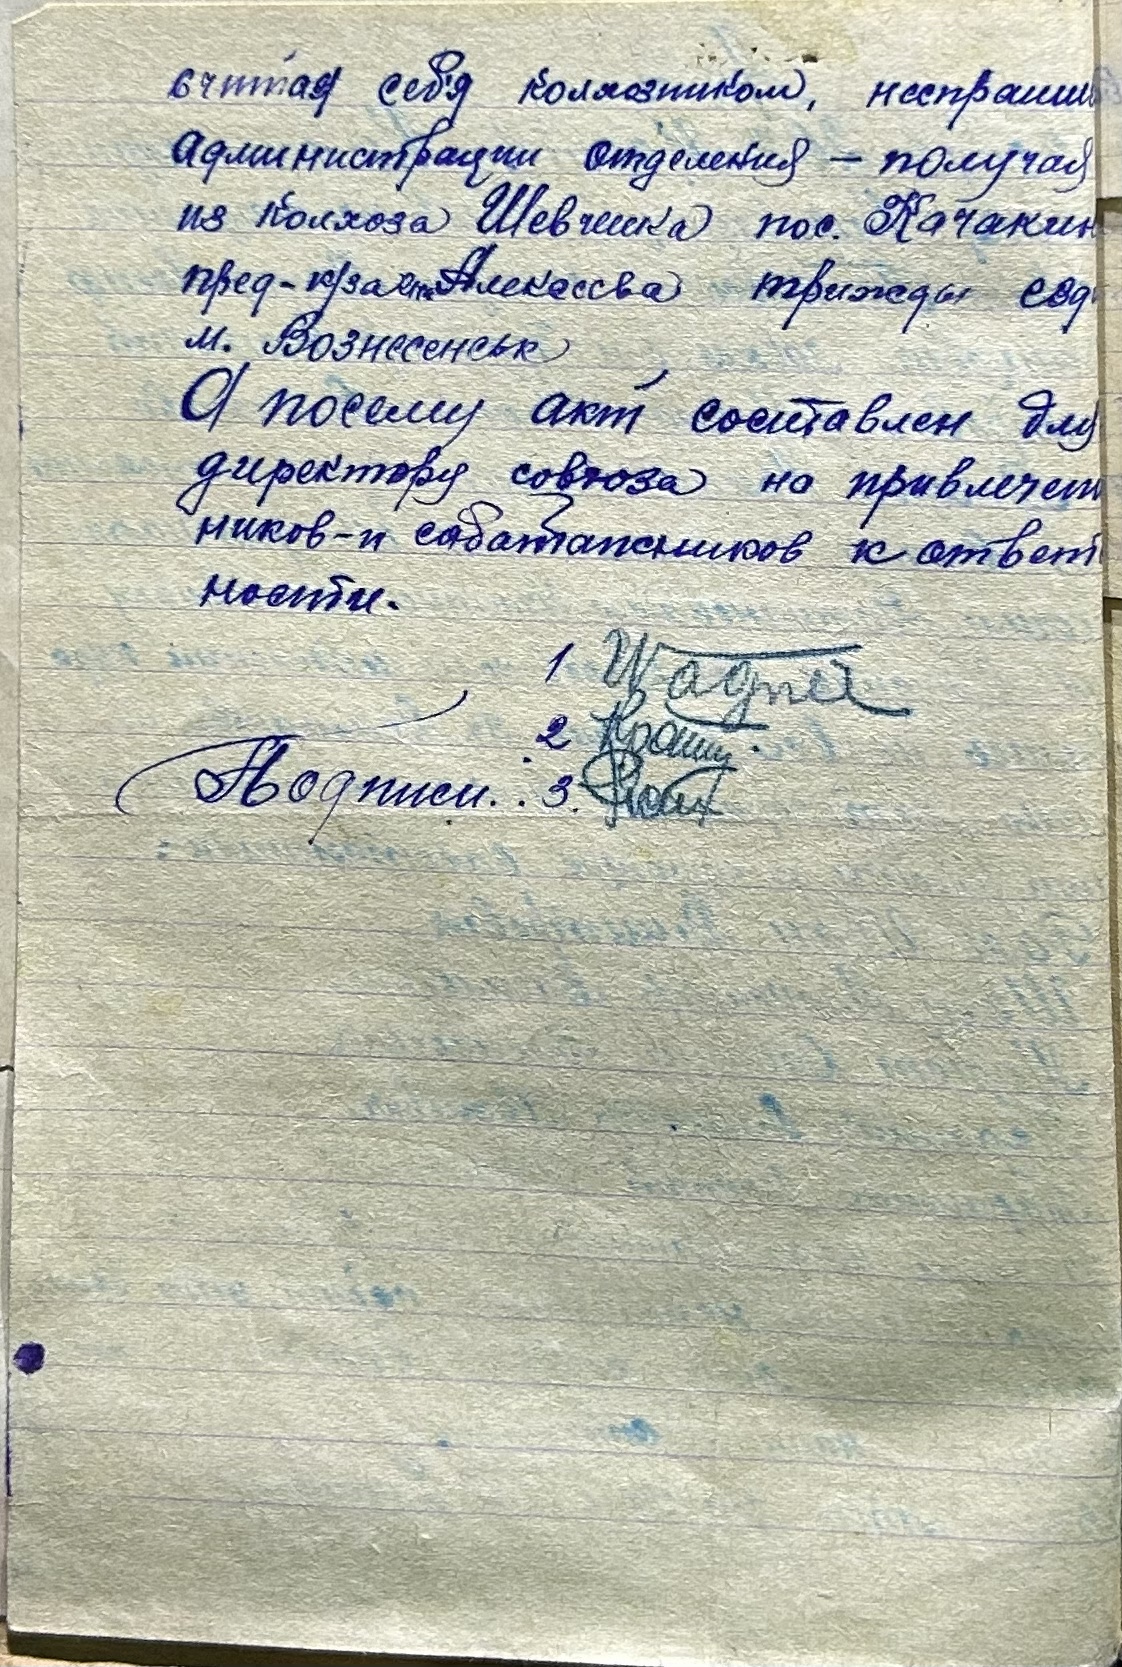 считая себя колхозником, неспраши
администрации отделения – получая
из колхоза Шевченка пос. Качакин
пред-к/за Алекасева трижды
м. Вознесенськ
А посему акт составлен для
директору совхоза на привлечен
ников-и саботажников к ответ
ности.
1 Wagner
2
Подписи... 3.